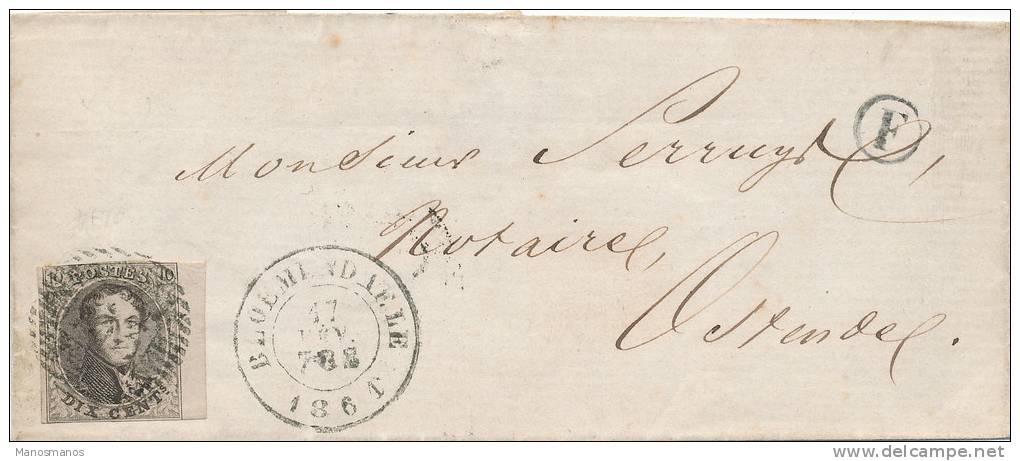 F
Monsieur Serruys,
Notaire,
Ostende.
10 10
POSTES
DIX CENTS
BLOEMENDAELE
17
1861
Manosmanos
delcampe.net